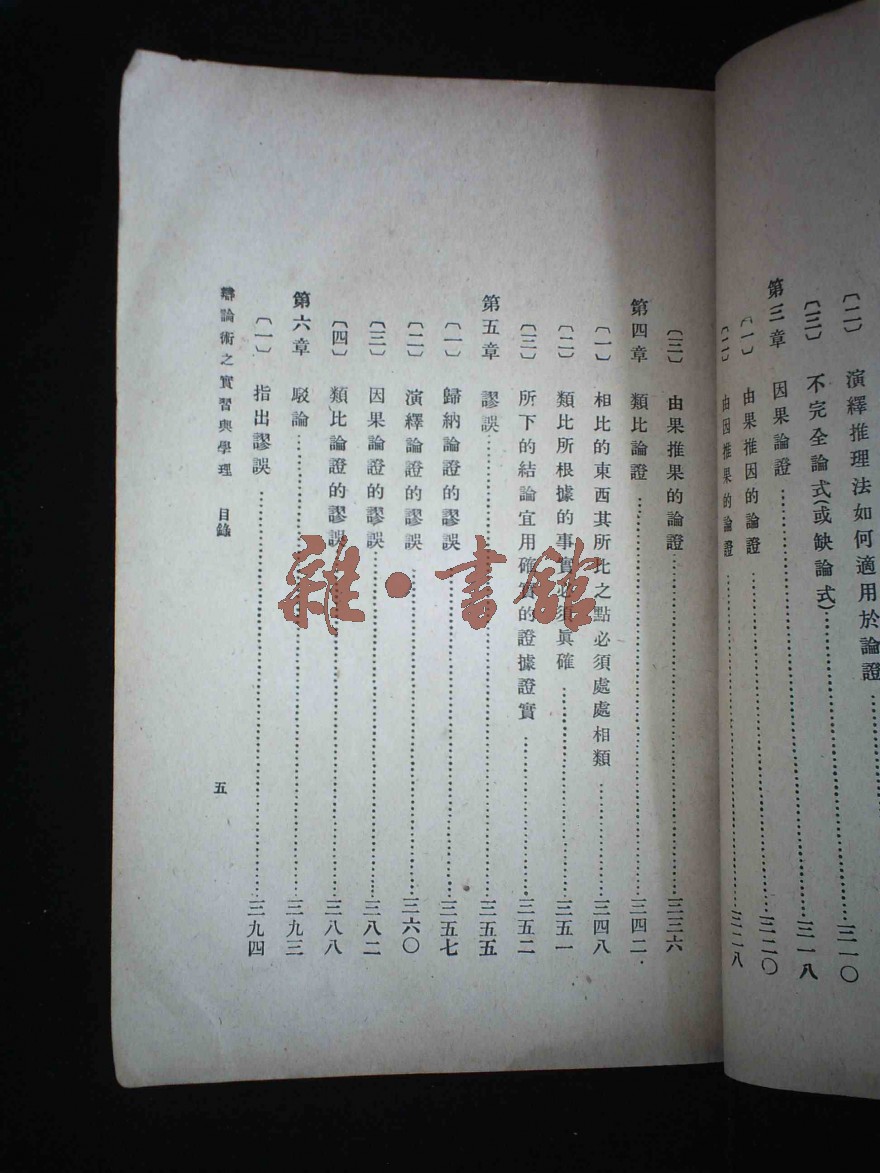 〔二〕 演繹推理法如何適用於論證……三一〇
〔三〕 不完全論式(或缺論式)……三一八
第三章 因果論證……三二〇
〔一〕 由果推因的論證
〔二〕 由因推果的論證……三二八
〔三〕 由果推果的論證……三三六
第四章 類比論證……三四二
〔一〕 相比的東西其所比之點必須處處相類……三四八
〔二〕 類比所根據的事實必須眞確……三五一
〔三〕 所下的結論宜用確實的證據證實……三五二
第五章 謬誤……三五五
〔一〕 歸納論證的謬誤……三五七
〔二〕 演繹論證的謬誤……三六〇
〔三〕 因果論證的謬誤……三八二
〔四〕 類比論證的謬誤……三八八
第六章 駁論……三九三
〔一〕 指出謬誤……三九四
辯論術之實習與學理 目錄 五
雜·書館